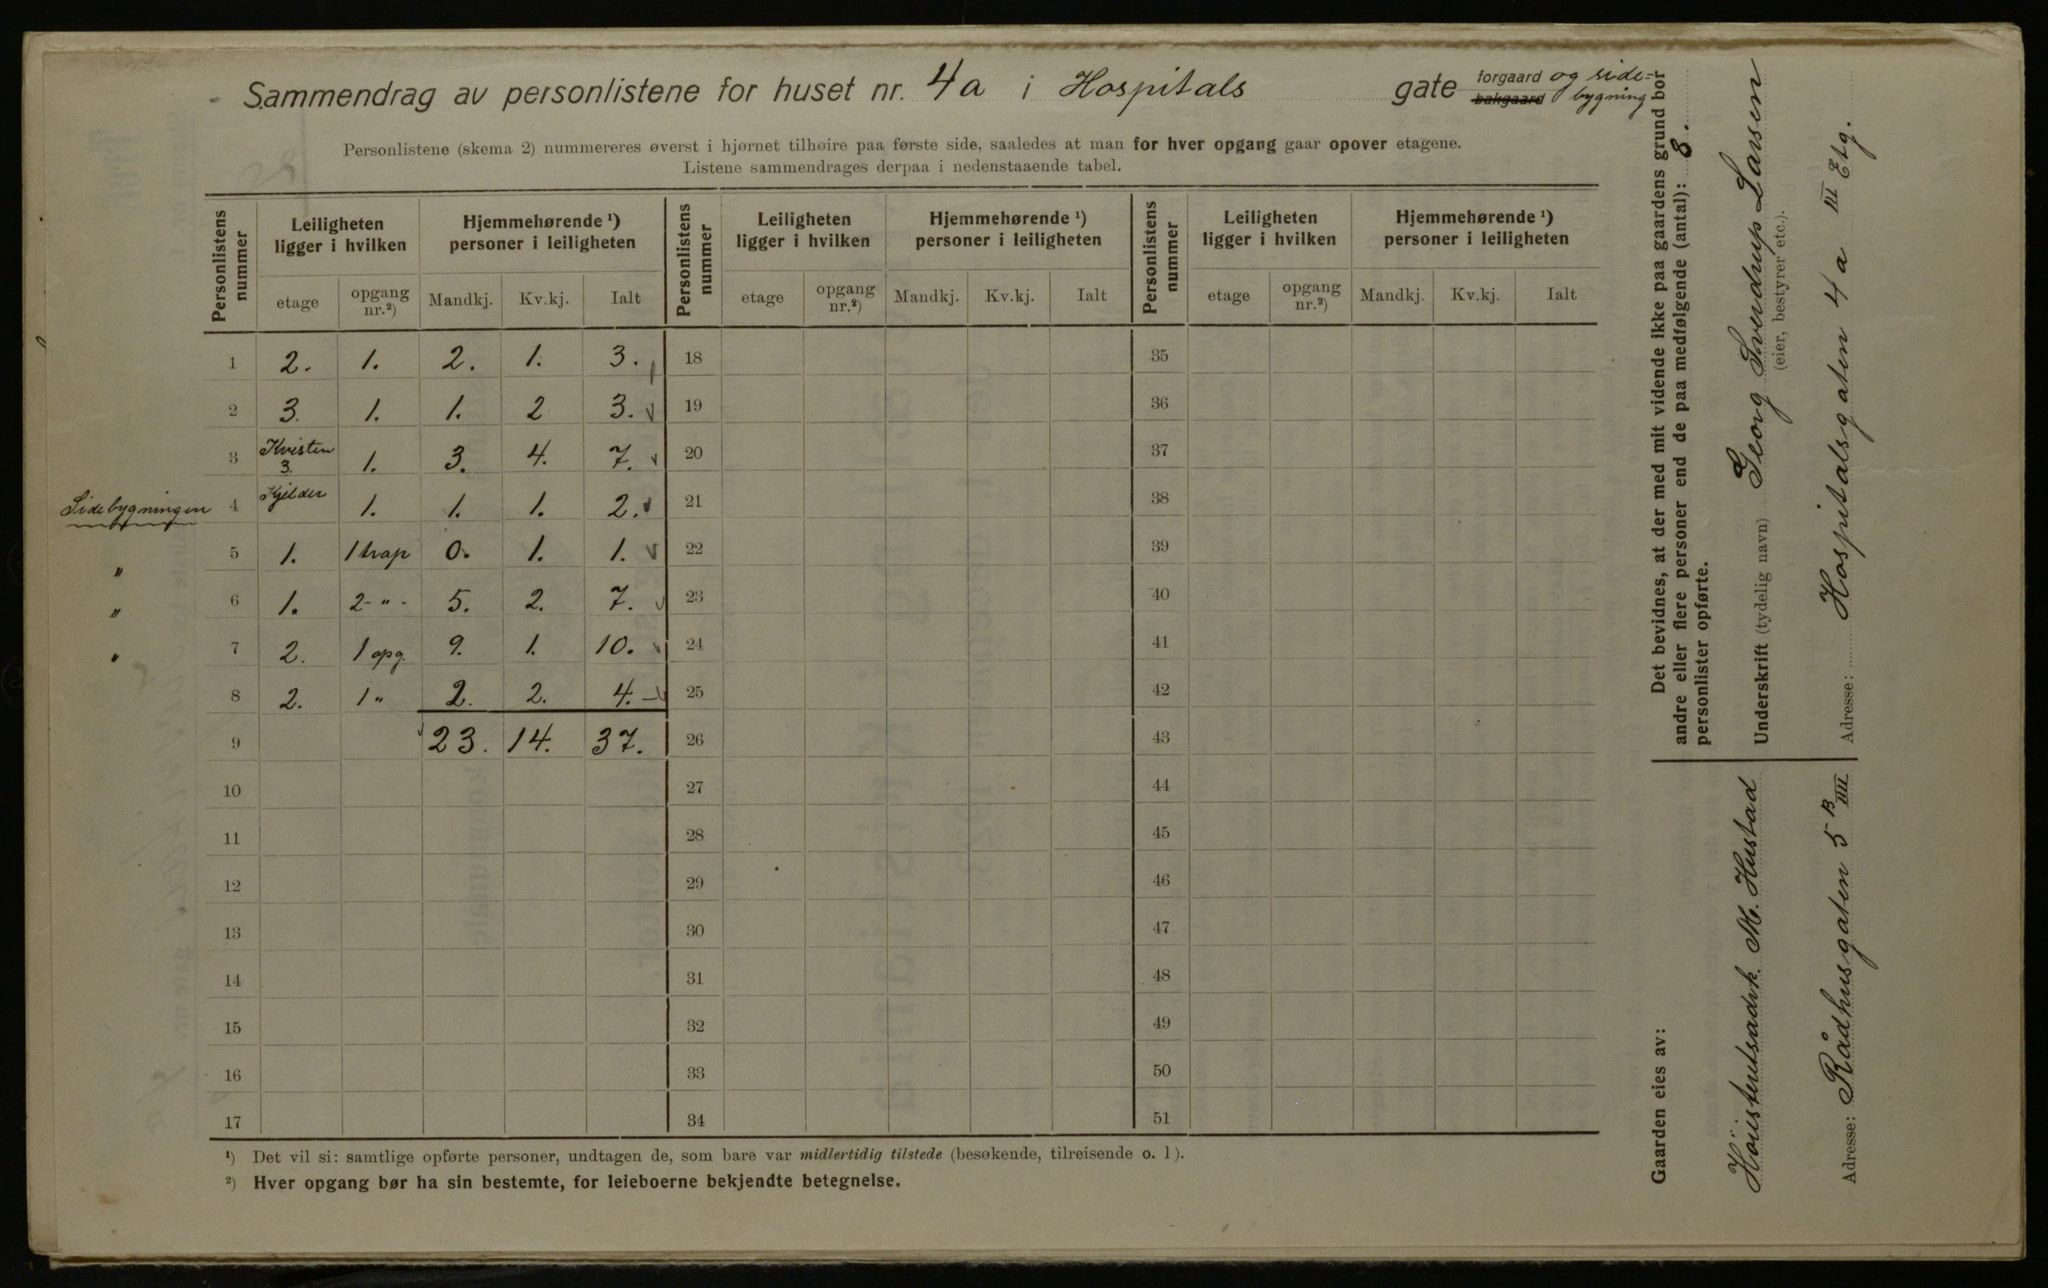 Sammendrag av personlistene for huset nr. 4a i Hospitals gate forgaard og side=
bakgaard bygning
Personlistene (skema 2) nummereres øverst i hjørnet tilhøire paa første side, saaledes at man for hver opgang gaar opover etagene.
Listene sammendrages derpaa i nedenstaaende tabel.
Personlistens nummer | Leiligheten ligger i hvilken | Hjemmehørende ¹) personer i leiligheten | Personlistens nummer | Leiligheten ligger i hvilken | Hjemmehørende ¹) personer i leiligheten | Personlistens nummer | Leiligheten ligger i hvilken | Hjemmehørende ¹) personer i leiligheten
etage | opgang nr.²) | Mandkj. | Kv.kj. | Ialt | etage | opgang nr.²) | Mandkj. | Kv.kj. | Ialt | etage | opgang nr.²) | Mandkj. | Kv.kj. | Ialt
1 2. 1. 2. 1. 3. 18 35
2 3. 1. 1. 2 3. 19 36
3 Kvisten 3. 1. 3. 4. 7. 20 37
Sidebygningen 4 Kjelder 1. 1. 1. 2. 21 38
" 5 1. 1 trap 0. 1. 1. 22 39
" 6 1. 2 - " - 5. 2. 7. 23 40
" 7 2. 1 opg. 9. 1. 10. 24 41
8 2. 1 " 2. 2. 4. 25 42
9 23. 14. 37. 26 43
10 27 44
11 28 45
12 29 46
13 30 47
14 31 48
15 32 49
16 33 50
17 34 51
¹) Det vil si: samtlige opførte personer, undtagen de, som bare var midlertidig tilstede (besøkende, tilreisende o. l).
²) Hver opgang bør ha sin bestemte, for leieboerne bekjendte betegnelse.
Det bevidnes, at der med mit vidende ikke paa gaardens grund bor
andre eller flere personer end de paa medfølgende (antal): 8.
personlister opførte.
Underskrift (tydelig navn) Georg Sverdrup Larsen
(eier, bestyrer etc.).
Adresse: Hospitalsgaten 4 a III Etg.
Gaarden eies av:
M. Hustad
Adresse: Rådhusgaten 5 B III